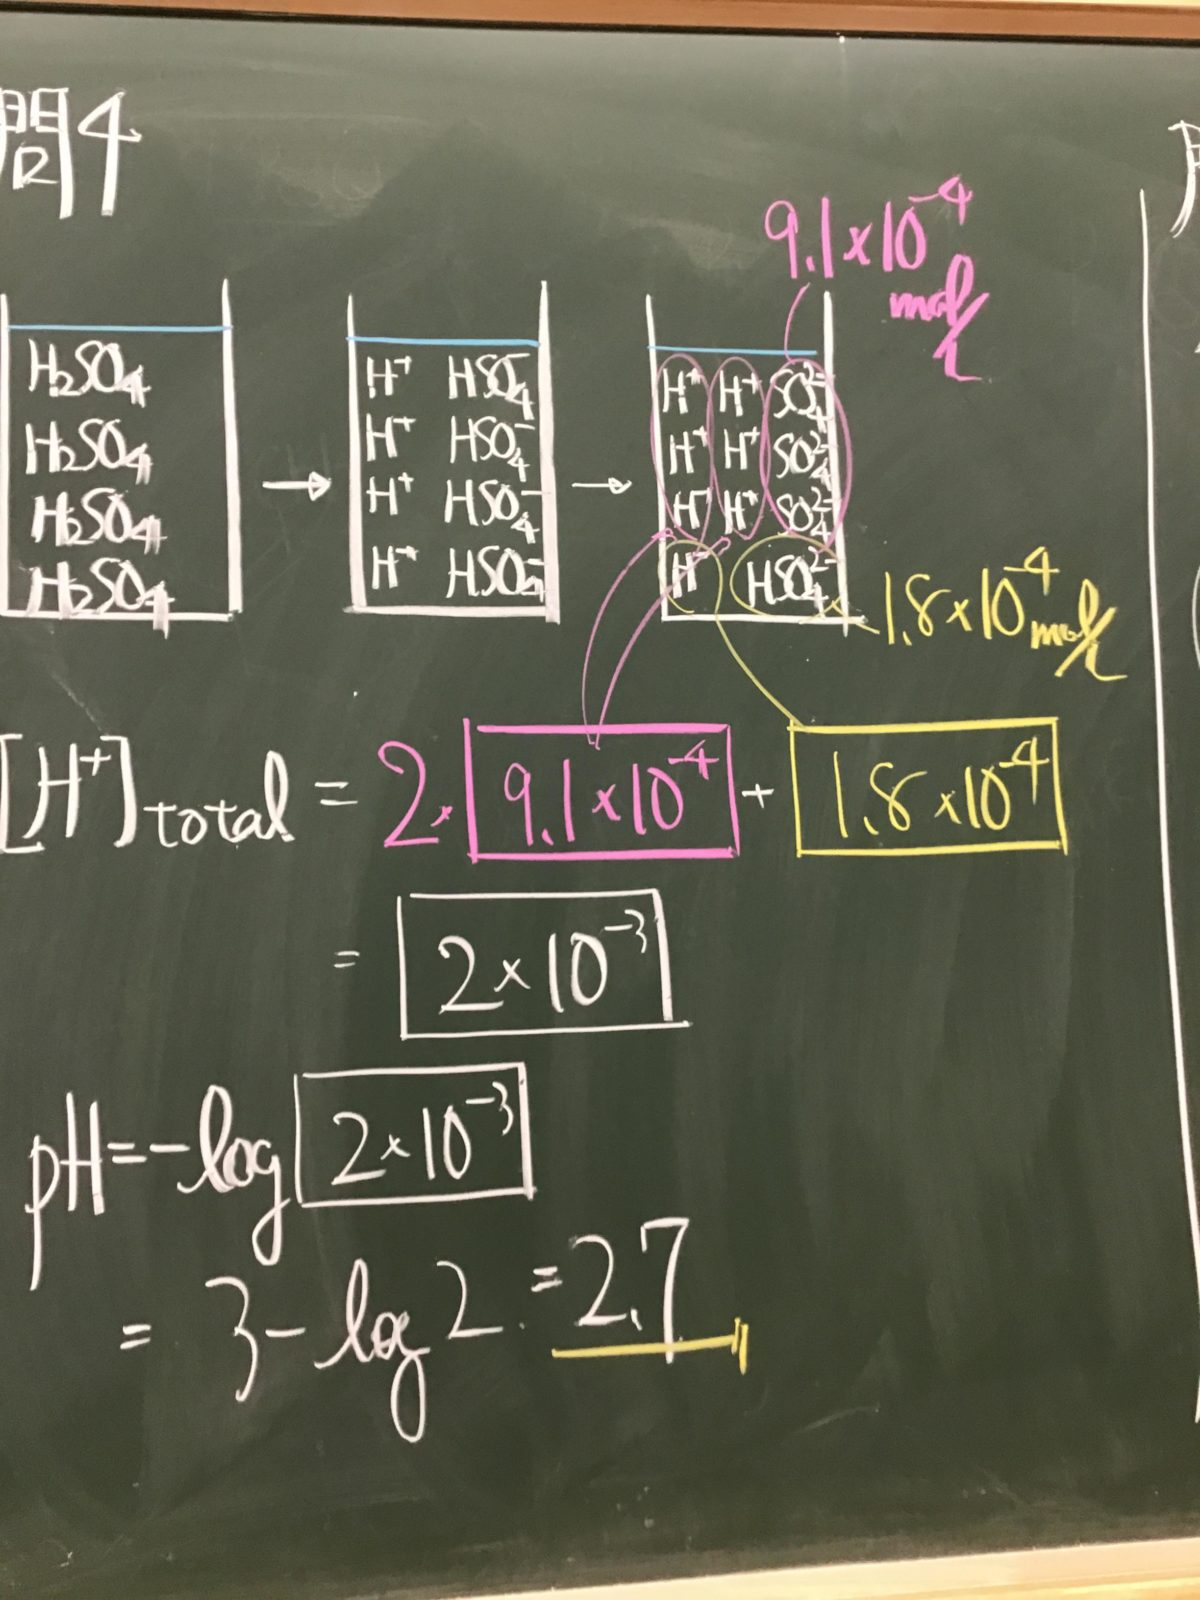 問4
9.1×10⁻⁴
mol/L
H₂SO₄
H₂SO₄
H₂SO₄
H₂SO₄
→
H⁺ HSO₄⁻
H⁺ HSO₄⁻
H⁺ HSO₄⁻
H⁺ HSO₄⁻
→
H⁺ H⁺ SO₄²⁻
H⁺ H⁺ SO₄²⁻
H⁺ H⁺ SO₄²⁻
H⁺ HSO₄²⁻
1.8×10⁻⁴ mol/L
[H⁺]total = 2×9.1×10⁻⁴ + 1.8×10⁻⁴
= 2×10⁻³
pH=-log 2×10⁻³
= 3-log2 =2.7